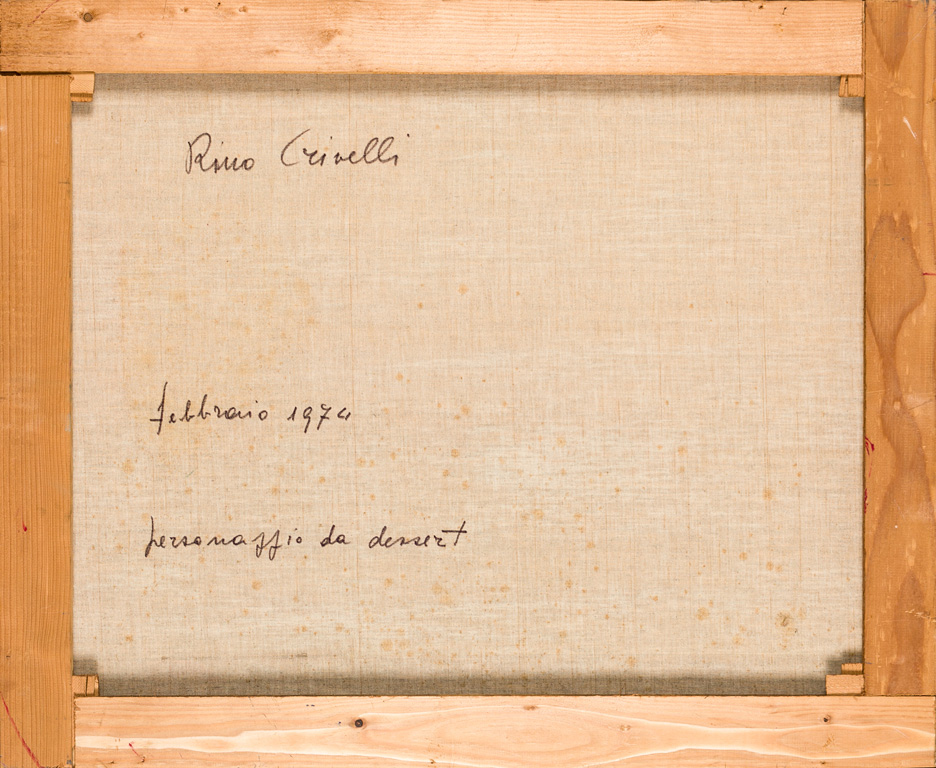 Rino Crivelli
febbraio 1974
personaggio da dessert